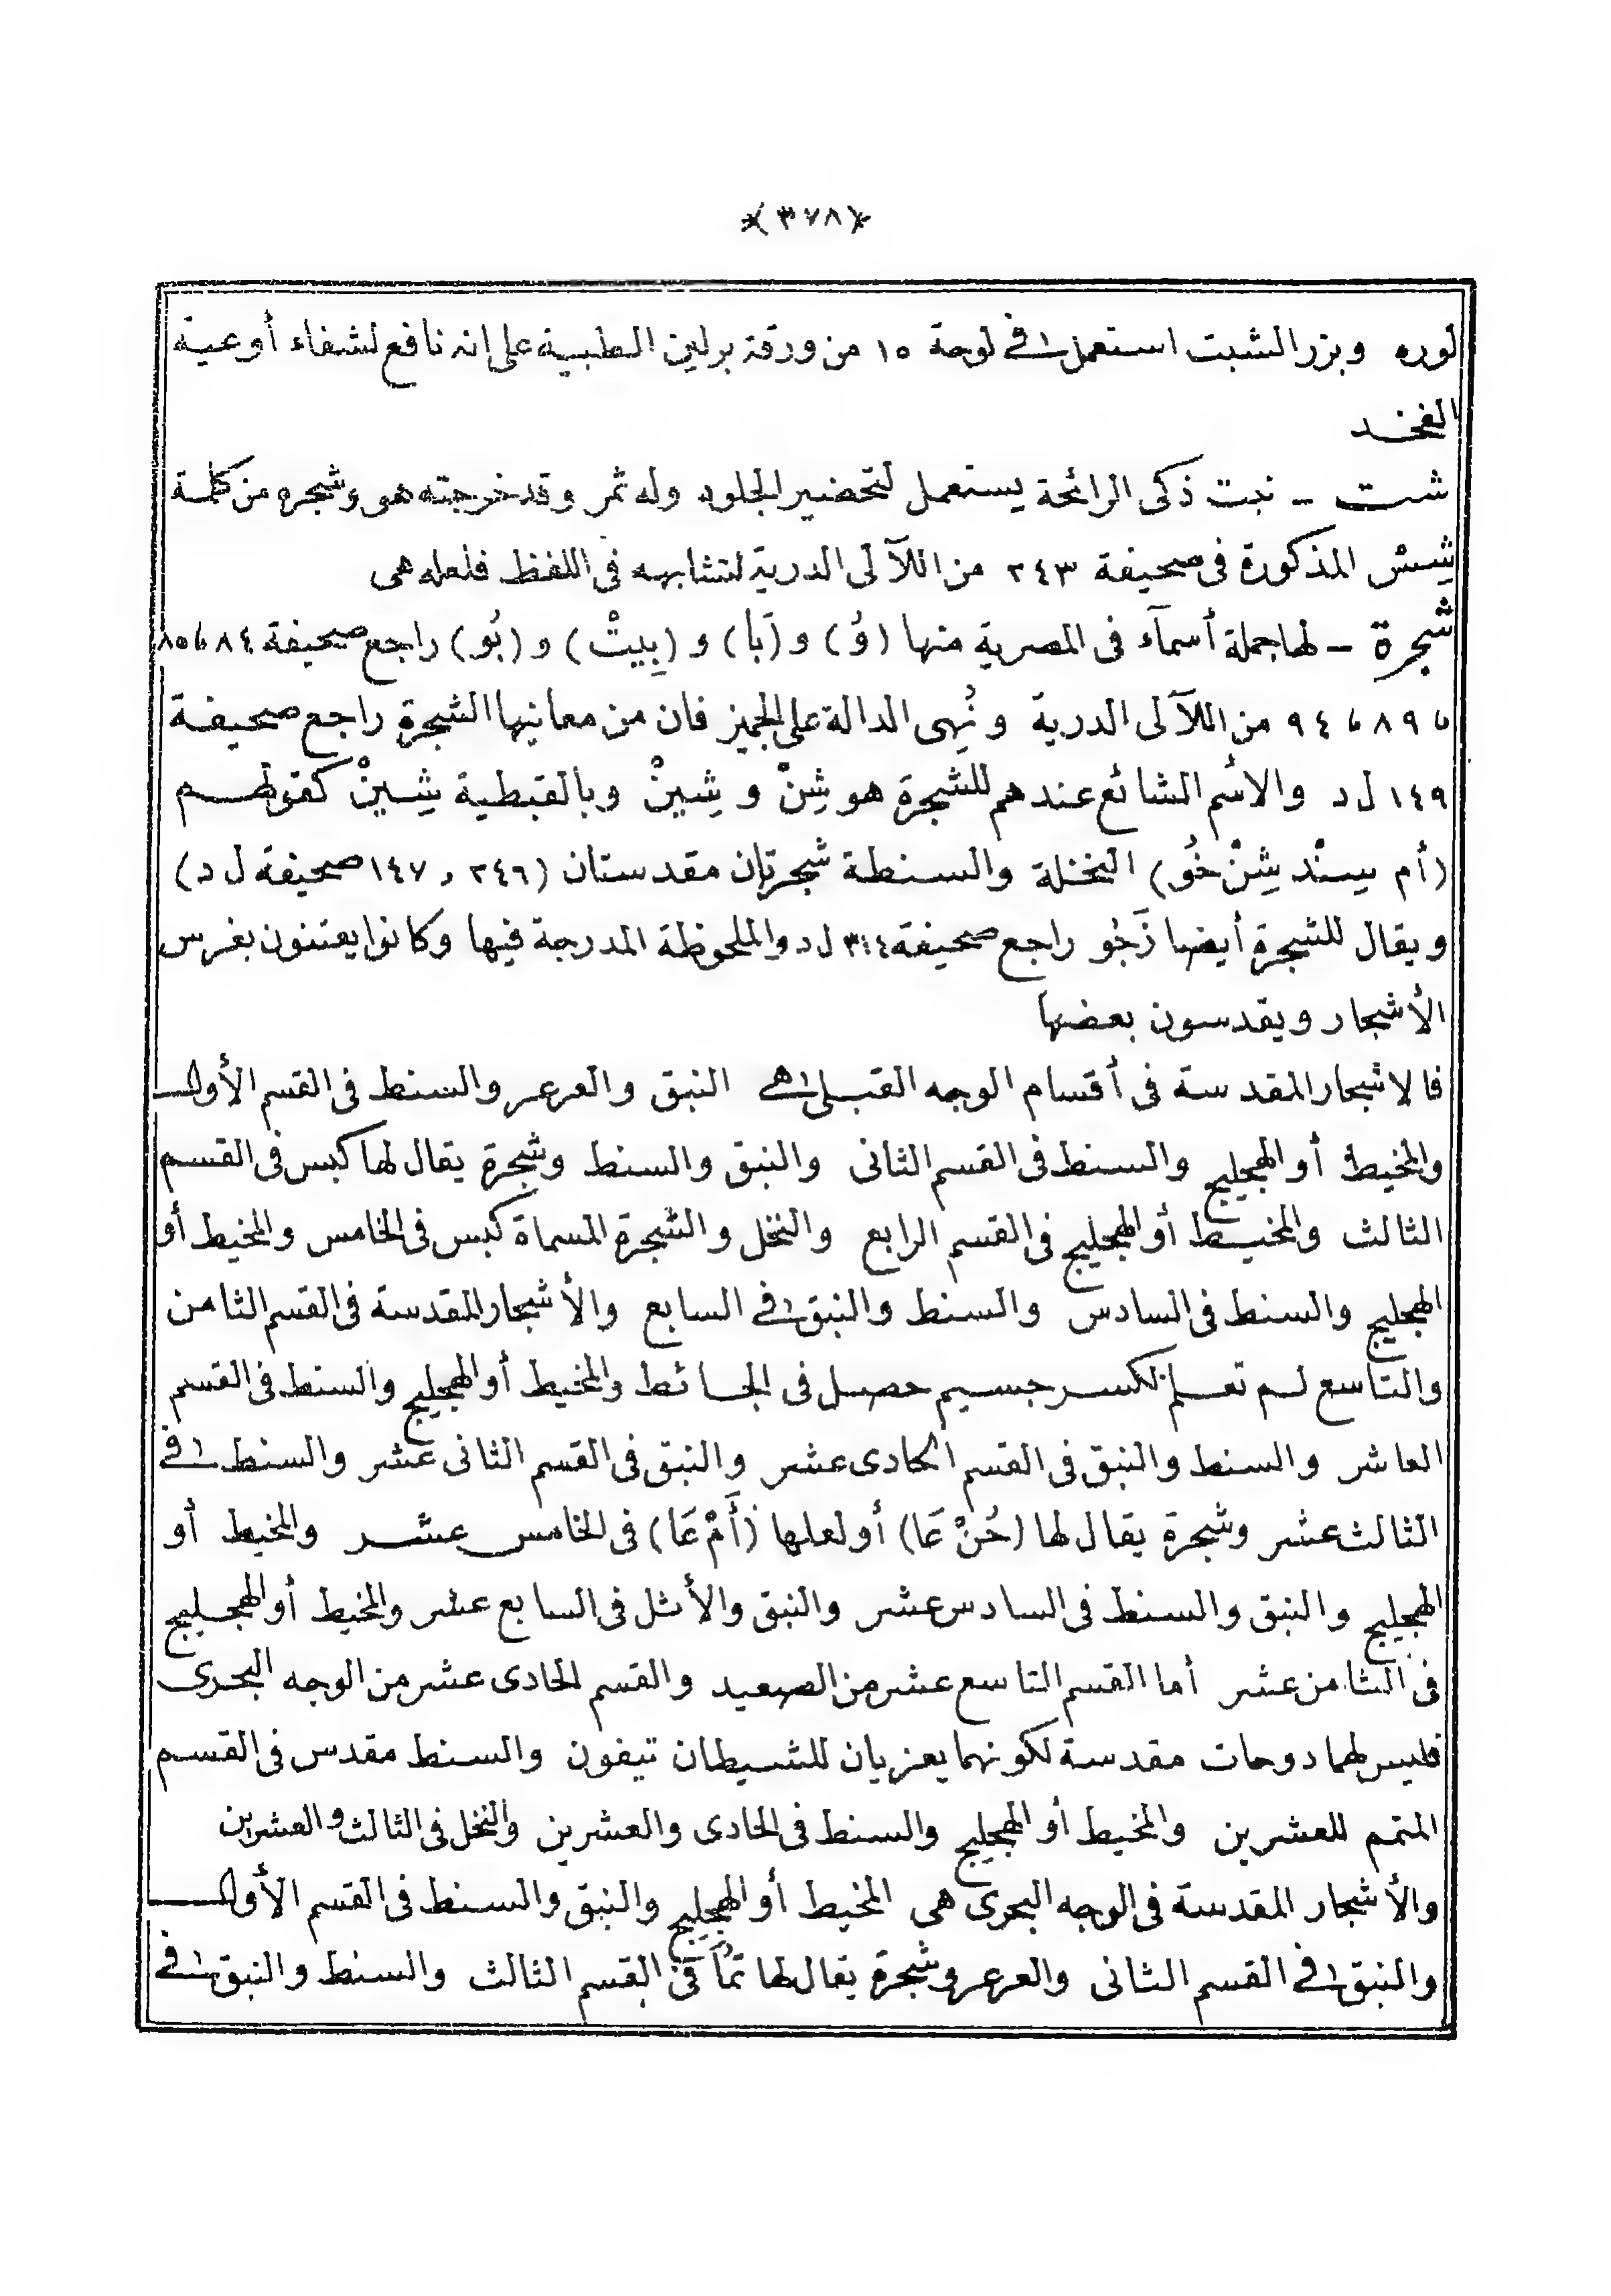 *(٣٧٨)*
لوره وبزر الشبت استعمل فى لوحة ١٥ من ورقة برلين الطبية على انه نافع لشفاء أوعية
الفخد
شت – نبت ذكى الرائحة يستعمل لتحضير الجلود وله ثمر وقد خرجته هو وشجره من كلمة
شِسْ المذكورة فى صحيفة ٢٤٣ من اللآلى الدرية لتشابهه فى اللفظ فلعله هى
شجرة – لها جملة أسمآء فى المصرية منها (وُ) و (بَا) و (بِيتْ) و (بُو) راجع صحيفة ٨٤ و ٨٥
و ٨٩ و ٩٤ من اللآلى الدرية ونُهى الدالة على الجميز فان من معانيها الشجرة راجع صحيفة
١٤٩ ل د والاسم الشائع عندهم للشجرة هو شِنْ و شِينْ وبالقبطية شِينْ كقولهم
(أم سِنْد شِنْ خُو) النخلة والسنطة شجرتان مقدستان (٢٤٦ و ١٤٧ صحيفة ل د)
ويقال للشجرة أيضا زَجُو راجع صحيفة ٣١٤ ل د والملحوظة المدرجة فيها وكانوا يعتنون بغرس
الأشجار ويقدسون بعضها
فالاشجار المقدسة فى أقسام الوجه القبلى هى النبق والعرعر والسنط فى القسم الأول
والمخيط أو الهجليج والسنط فى القسم الثانى والنبق والسنط وشجرة يقال لها كبس فى القسم
الثالث والمخيط أو الهجليج فى القسم الرابع والنخل والشجرة المسماة كبس فى الخامس والمخيط أو
الهجليج والسنط فى السادس والسنط والنبق فى السابع والأشجار المقدسة فى القسم الثامن
والتاسع لم تعلم لكسر جسيم حصل فى الحائط والمخيط أو الهجليج والسنط فى القسم
العاشر والسنط والنبق فى القسم الحادى عشر والنبق فى القسم الثانى عشر والسنط فى
الثالث عشر وشجرة يقال لها (حُنْ عَا) أو لعلها (أَمْ عَا) فى الخامس عشر والمخيط أو
الهجليج والنبق والسنط فى السادس عشر والنبق والأثل فى السابع عشر والمخيط أو الهجليج
فى الثامن عشر أما القسم التاسع عشر من الصعيد والقسم الحادى عشر من الوجه البحرى
فليس لهما دوحات مقدسة لكونهما يعزيان للشيطان تيفون والسنط مقدس فى القسم
المتمم للعشرين والمخيط أو الهجليج والسنط فى الحادى والعشرين والنخل فى الثالث والعشرين
والأشجار المقدسة فى الوجه البحرى هى المخيط أو الهجليج والنبق والسنط فى القسم الأول
والنبق فى القسم الثانى والعرعر وشجرة يقال لها تمأ فى القسم الثالث والسنط والنبق فى